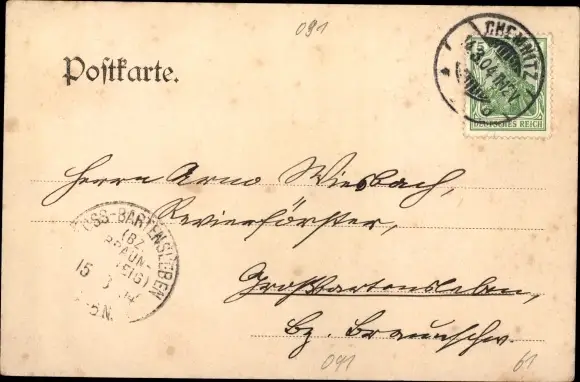 091
Postkarte.
CHEMNITZ
5
DEUTSCHES REICH
Herrn Arno Wiesbach,
Revierförster,
GROSS-BARTENSLEBEN
(BZ.
BRAUN-
15
5N.
Großbartensleben,
Bz. Braunschw.
091
61